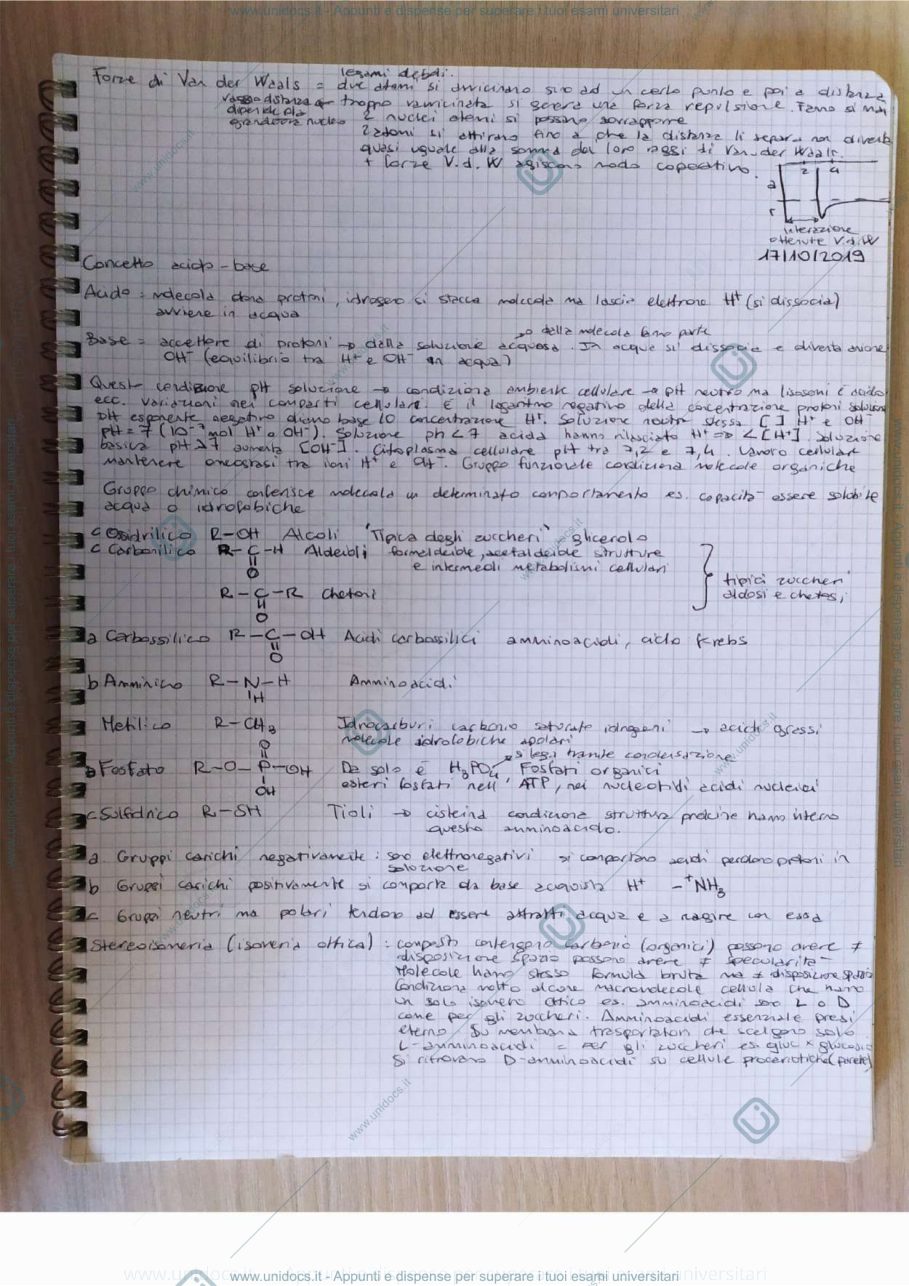 www.unidocs.it - Appunti e dispense per superare i tuoi esami universitari
Forze di Van der Waals = legami deboli.
due atomi si avvicinano sino ad un certo punto e poi a distanza
troppo ravvicinata si genera una forza repulsione. Fanno si
distanza
dipende da
grandezza nucleo
2 nuclei atomi si possano sovrapporre
2 atomi si attirano fino a che la distanza li separa non diventa
quasi uguale alla somma dei loro raggi di Van der Waals.
+ forze V.d.W agiscono modo
2 4
a
r
interazione
ottenute V.d.W
17/10/2019
Concetto acido-base
Acido = molecola dona protoni, idrogeno si stacca molecola ma lascia elettrone H⁺ (si dissocia)
avviene in acqua
→ della molecola fanno parte
Base = accettore di protoni → dalla soluzione acquosa. In acqua si dissocia e diventa anione
OH⁻ (equilibrio tra H⁺ e OH⁻ in acqua)
Queste condizione pH soluzione → condiziona ambiente cellulare → pH neutro ma lisosomi è acido
ecc. variazioni nei comparti cellulari. È il logaritmo negativo della concentrazione protoni soluzione
pH esponente negativo diamo base 10 concentrazione H⁺. Soluzione neutra stessa [ ] H⁺ e OH⁻
pH = 7 (10⁻⁷ mol H⁺ e OH⁻). Soluzione ph < 7 acida hanno rilasciato H⁺ => < [H⁺]. Soluzione
basica pH > 7 aumenta [OH⁻]. Citoplasma cellulare pH tra 7,2 e 7,4. Lavoro cellulare
mantenere omeostasi tra ioni H⁺ e OH⁻. Gruppo funzionale condiziona molecole organiche
Gruppo chimico conferisce molecola un determinato comportamento es. capacità essere solubile
acqua o idrofobiche
c Ossidrilico R-OH Alcoli "Tipica degli zuccheri" glicerolo
c Carbonilico R-C-H Aldeidi formaldeide, acetaldeide strutture
O e intermedi metabolismi cellulari
R-C-R Chetoni
O
tipici zuccheri
aldosi e chetosi
a Carbossilico R-C-OH Acidi carbossilici amminoacidi, ciclo Krebs
O
b Amminico R-N-H Amminoacidi
H
Metilico R-CH₃ Idrocarburi carbonio saturato idrogeni → acidi grassi
molecole idrofobiche apolari
O → si lega tramite condensazione
a Fosfato R-O-P-OH Da solo è H₃PO₄, Fosfati organici
OH esteri fosfati nell' ATP, nei nucleotidi acidi nucleici
c Sulfidrico R-SH Tioli → cisteina condiziona struttura proteine hanno interno
questo amminoacido.
a. Gruppi carichi negativamente: sono elettronegativi si comportano acidi perdono protoni in
soluzione
b Gruppi carichi positivamente si comporta da base acquista H⁺ -⁺NH₃
c Gruppi neutri ma polari tendono ad essere attratti acqua e a reagire con essa
Stereoisomeria (isomeria ottica): composti contengono carbonio (organici) possono avere ≠
disposizione spazio possono avere ≠ specularità
Molecole hanno stessa formula bruta ma ≠ disposizione spazio
Condiziona molto alcune macromolecole cellula che hanno
un solo isomero ottico es. amminoacidi sono L o D
come per gli zuccheri. Amminoacidi essenziale presi
eterno. Su membrana trasportatori che scelgono solo
L-amminoacidi = per gli zuccheri es. gluc x glucosio
Si ritrovano D-amminoacidi su cellule procariotiche (parete)
www.unidocs.it - Appunti e dispense per superare i tuoi esami universitari